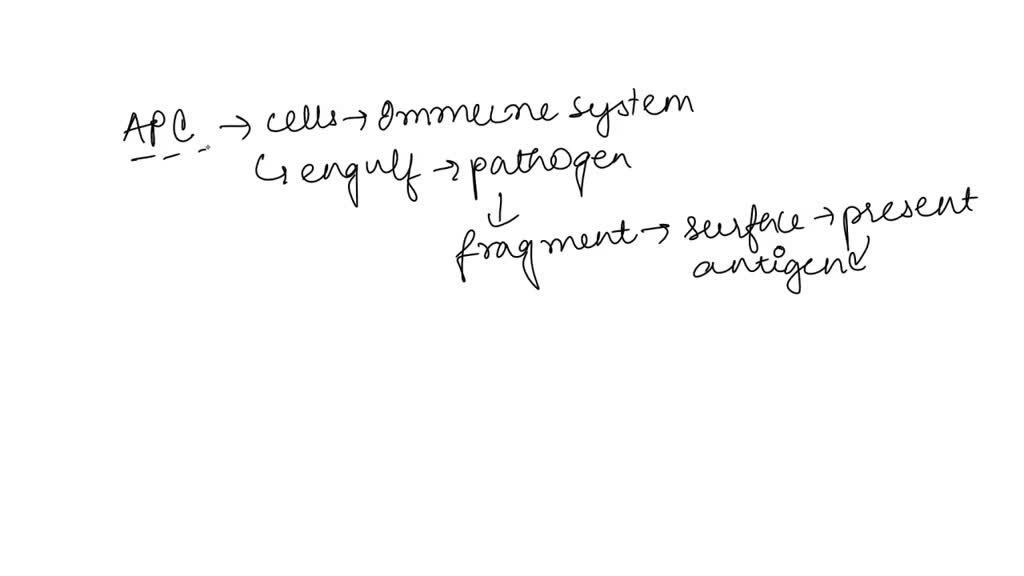 APC → cells → Immune system
↳ engulf → pathogen
↓
fragment → surface → present
antigen ↙